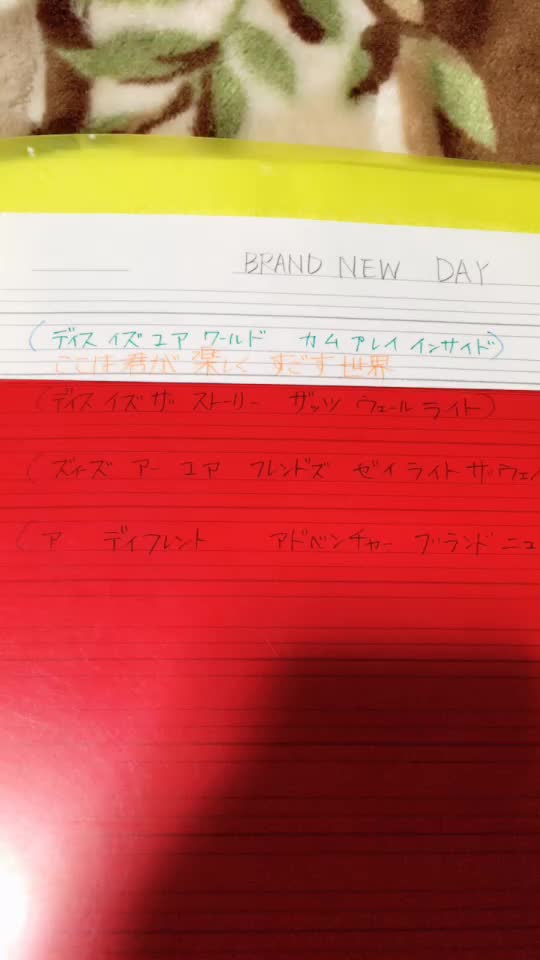 BRAND NEW DAY
(ディス イズ ユア ワールド カム プレイ インサイド)
ここは君が 楽しく すごす 世界
(ディス イズ ザ ストーリー ザッツ ウェール ライト)
(ズィーズ アー ユア フレンドズ ゼイ ライト ザ ウェイ
(ア ディフレント アドベンチャー ブランド ニュ